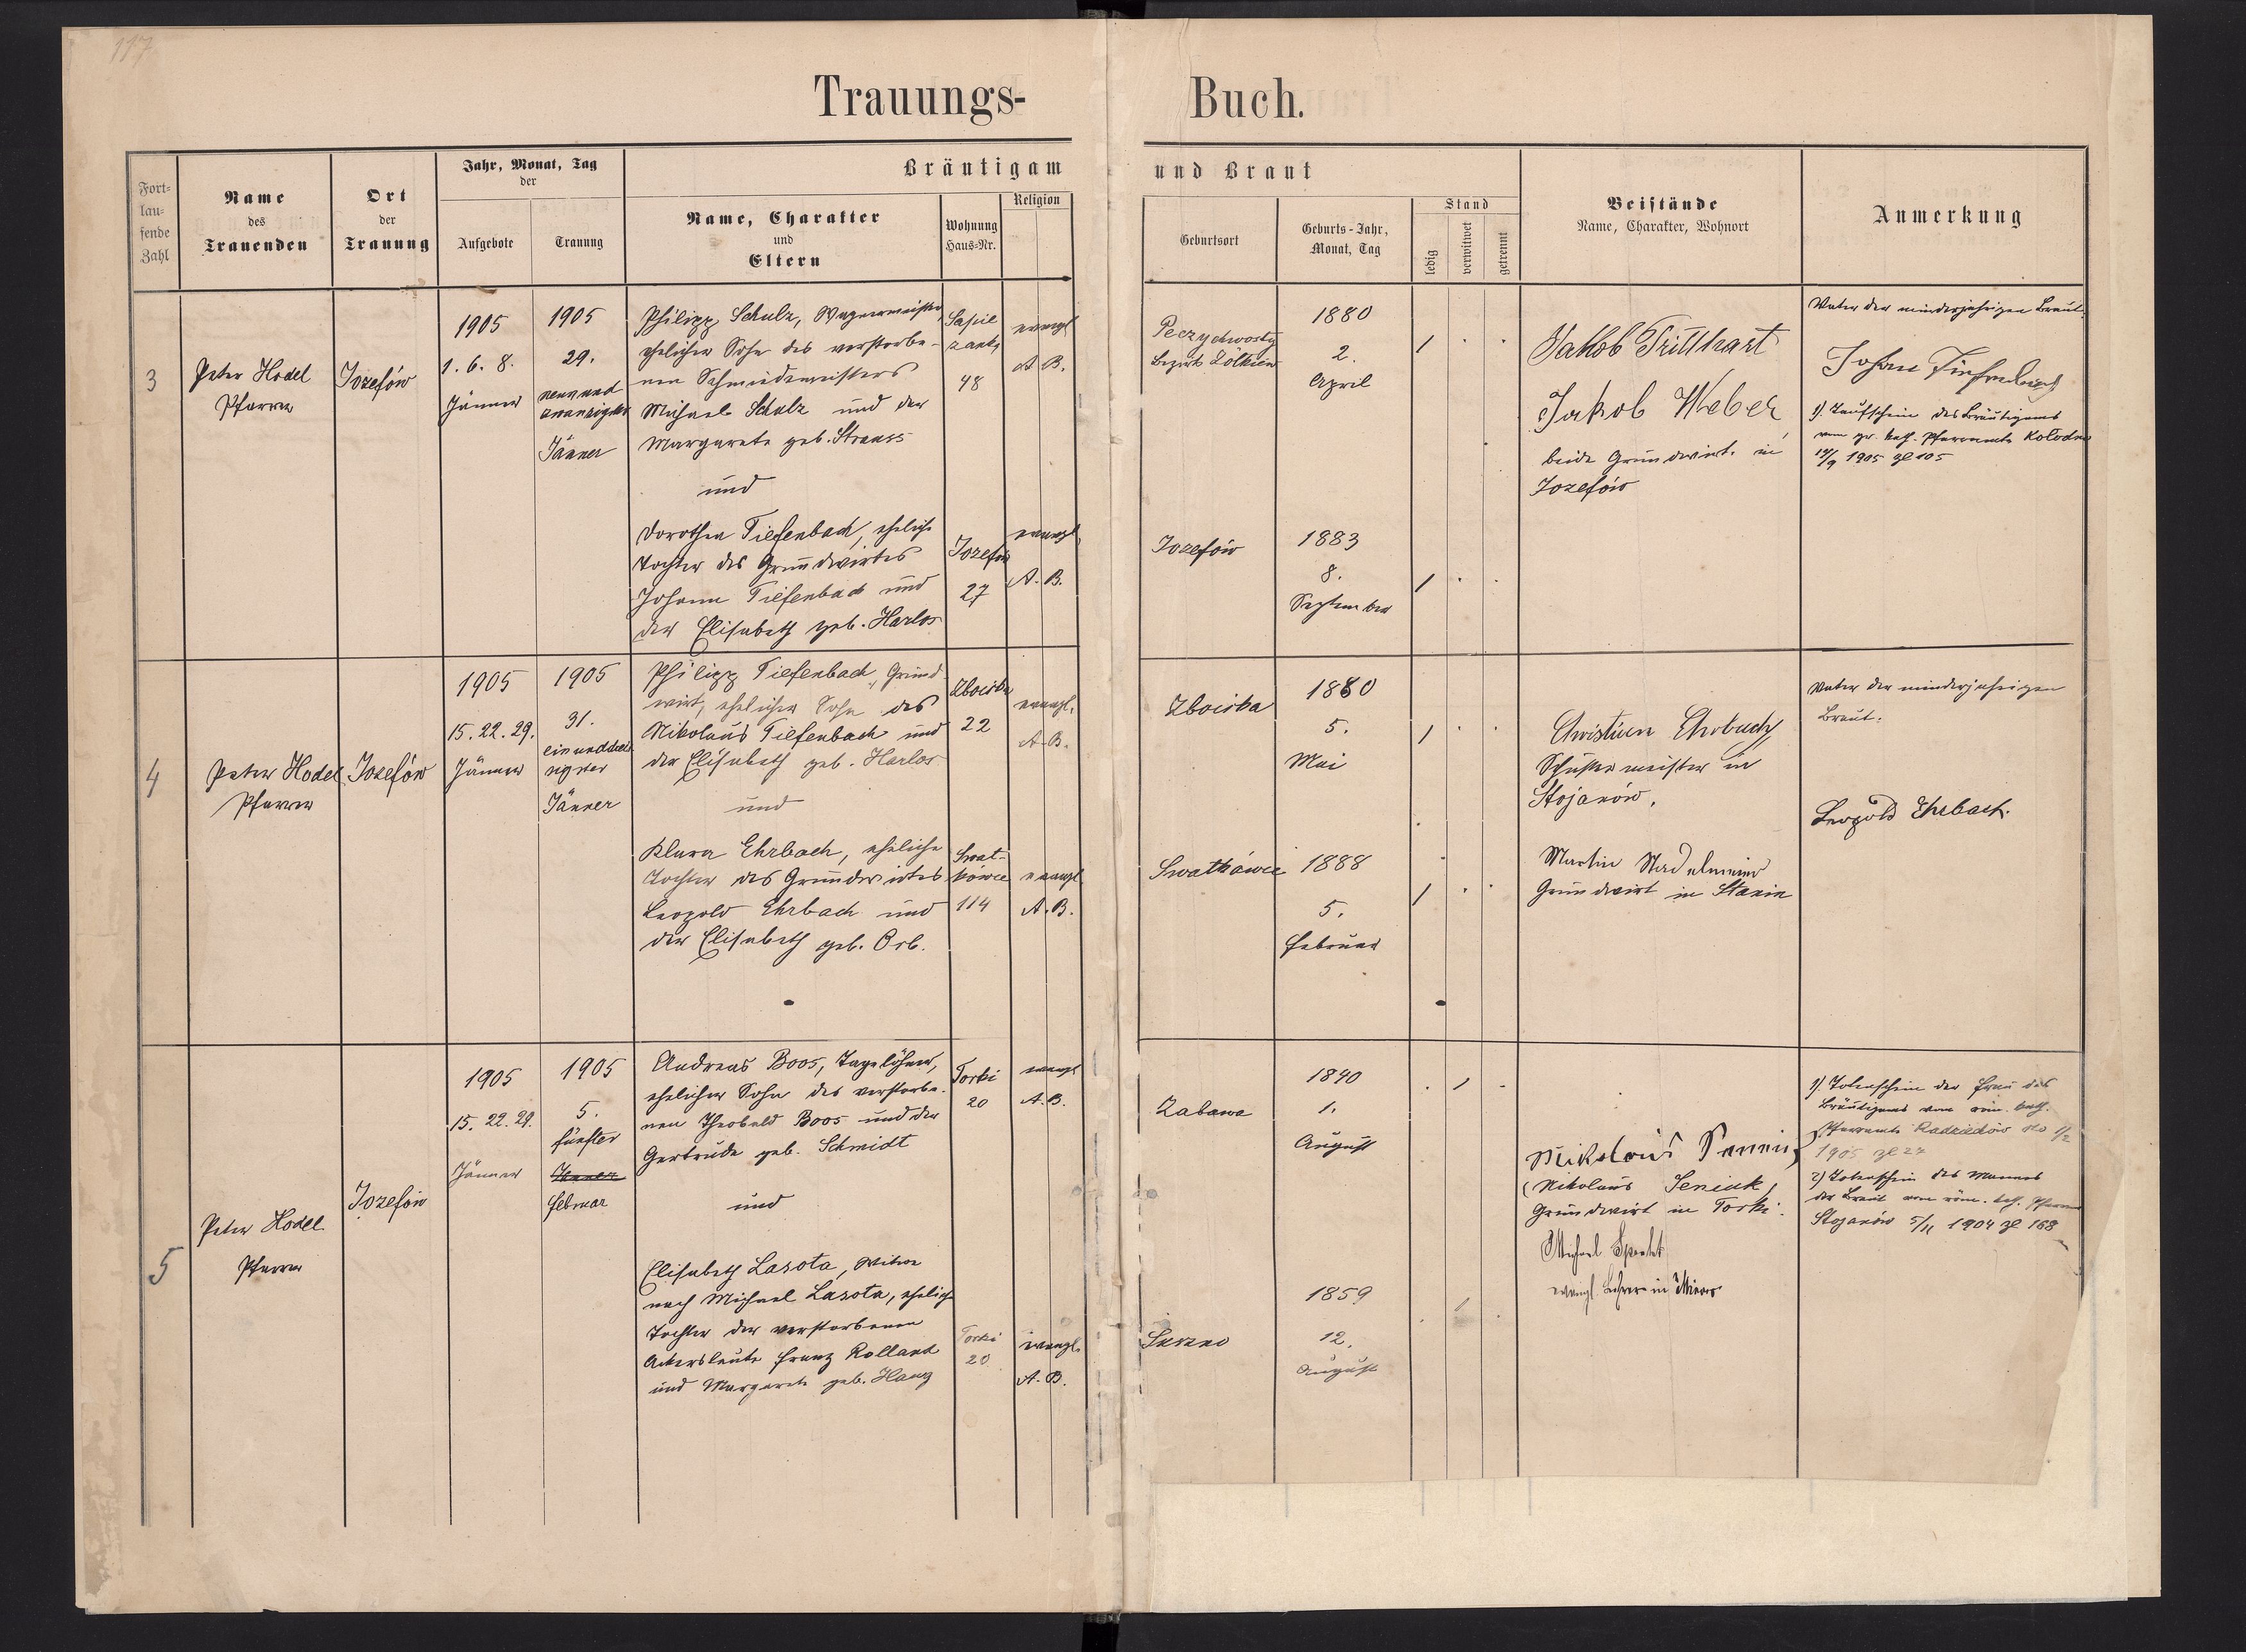 117
Trauungs-Buch.
Fort-
lau-
fende
Zahl
Name
des
Trauenden
Ort
der
Trauung
Jahr, Monat, Tag
der
Aufgebote
Trauung
Bräutigam und Braut
Name, Charakter
und
Eltern
Wohnung
Haus-Nr.
Religion
Geburtsort
Geburts-Jahr,
Monat, Tag
Stand
ledig
verwitwet
getrennt
Beistände
Name, Charakter, Wohnort
Anmerkung
3
Peter Hodel
Pfarrer
Jozefów
1905
1. 6. 8.
Jänner
1905
29.
neunund
zwanzigster
Jänner
Philipp Schulz, Wagnermeister,
ehelicher Sohn des verstorbe-
nen Schmiedemeisters
Michael Schulz und der
Margarete geb. Strauss
und
Dorothea Tiefenbach, eheliche
Tochter des Grundwirtes
Johann Tiefenbach und
der Elisabeth geb. Harlos
Sapie
zanka
48
evangl
A. B.
Jozefów
27
evangl.
A. B.
Peczychwosty
Bezirk Zółkiew
1880
2.
April
Jozefów
1883
8.
September
Jakob Tritthart
Jakob Weber
beide Grundwirt. in
Jozefów
Vater der minderjährigen Braut.
Johan Tiefenbach
1). Taufschein des Bräutigams
vom gr. kath. Pfarramte Kolodno
1905 Zl 105
4
Peter Hodel
Pfarrer
Jozefów
1905
15. 22. 29.
Jänner
1905
31.
einunddreis
sigster
Jänner
Philipp Tiefenbach, Grund
wirt, ehelicher Sohn des
Nikolaus Tiefenbach und
der Elisabeth geb. Harlos
und
Klara Ehrbach, eheliche
Tochter des Grundwirtes
Leopold Ehrbach und
der Elisabeth geb. Orb.
Zboiska
22
evangl.
A. B.
Swat-
kówce
114
evangl
A. B.
Zboiska
1880
5.
Mai
Swatkówce
1888
5.
Februar
Christian Ehrbach
Schustermeister in
Stojanów.
Martin
Grundwirt in Stanin
Vater der minderjährigen
Braut.
Leopold Ehrbach.
5
Peter Hodel
Pfarrer
Jozefów
1905
15. 22. 29.
Jänner
1905
5.
fünfter
Jänner
Februar
Andreas Boos, Tagelöhner,
ehelicher Sohn des verstorbe-
nen Theobald Boos und der
Gertrude geb. Schmidt
und
Elisabeth Lasota, Witwe
nach Michael Lasota, eheliche
Tochter der verstorbenen
Ackersleute Franz Rolland
und Margarete geb. Haug
Torki
20
evangl
A. B.
Torki
20
evangl.
A. B.
Zabawa
1840
1.
August
1859
12.
August
Mikolaus
(Nikolaus Seniuk,
Grundwirt in Torki.
Michael Specht
evangl. Lehrer in
1). Totenschein der Frau des
Bräutigams vom röm. kath.
Pfarramte Radziechów
1905 Zl 27
2) Totenschein des Mannes
der Braut vom röm. kath. Pfarramt
Stojanów 5/11 1904 Zl 168